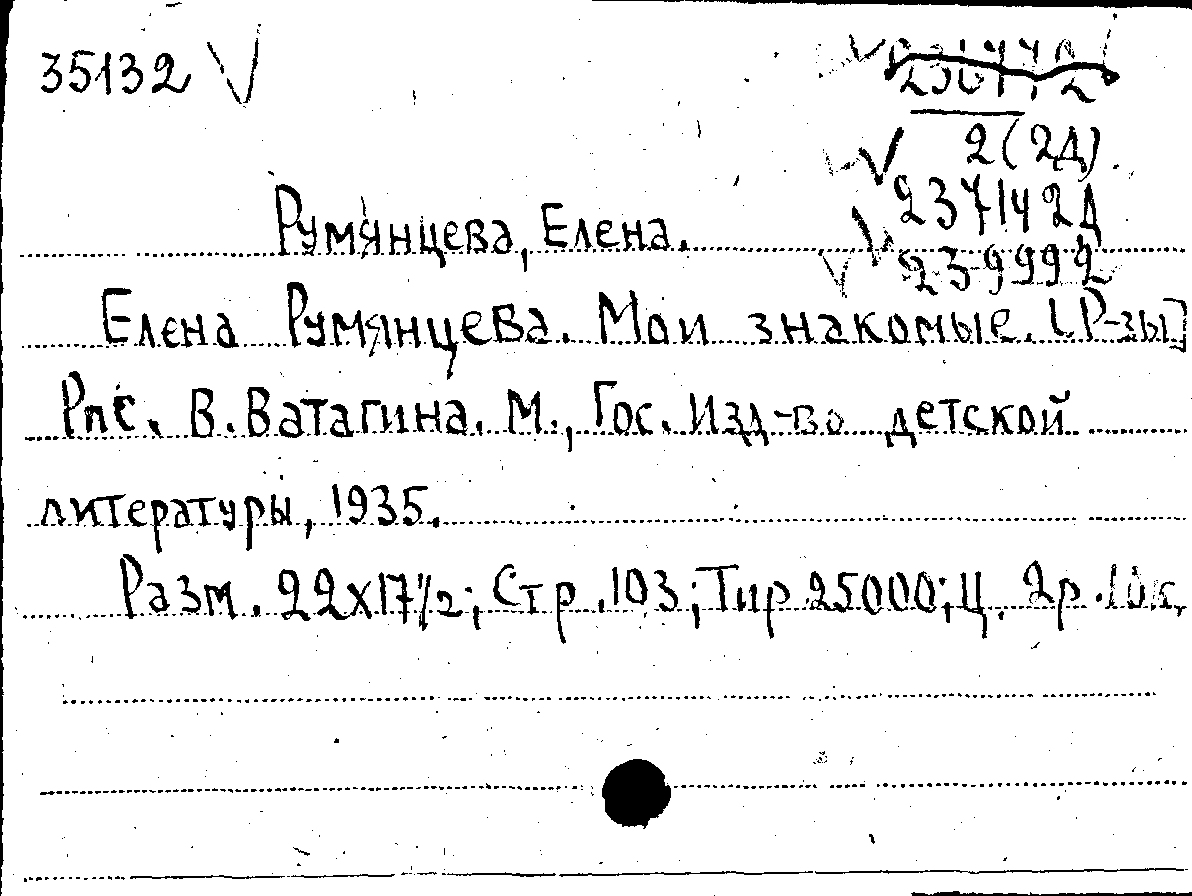 35132
2(2Д).
237142Д
239992
Румянцева, Елена.
Елена Румянцева. Мои знакомые. [Р-зы]
Рис. В. Ватагина. М., Гос. Изд-во детской
литературы, 1935.
Разм. 22х17½; Стр. 103; Тир 25000; Ц. 2р. 10к.